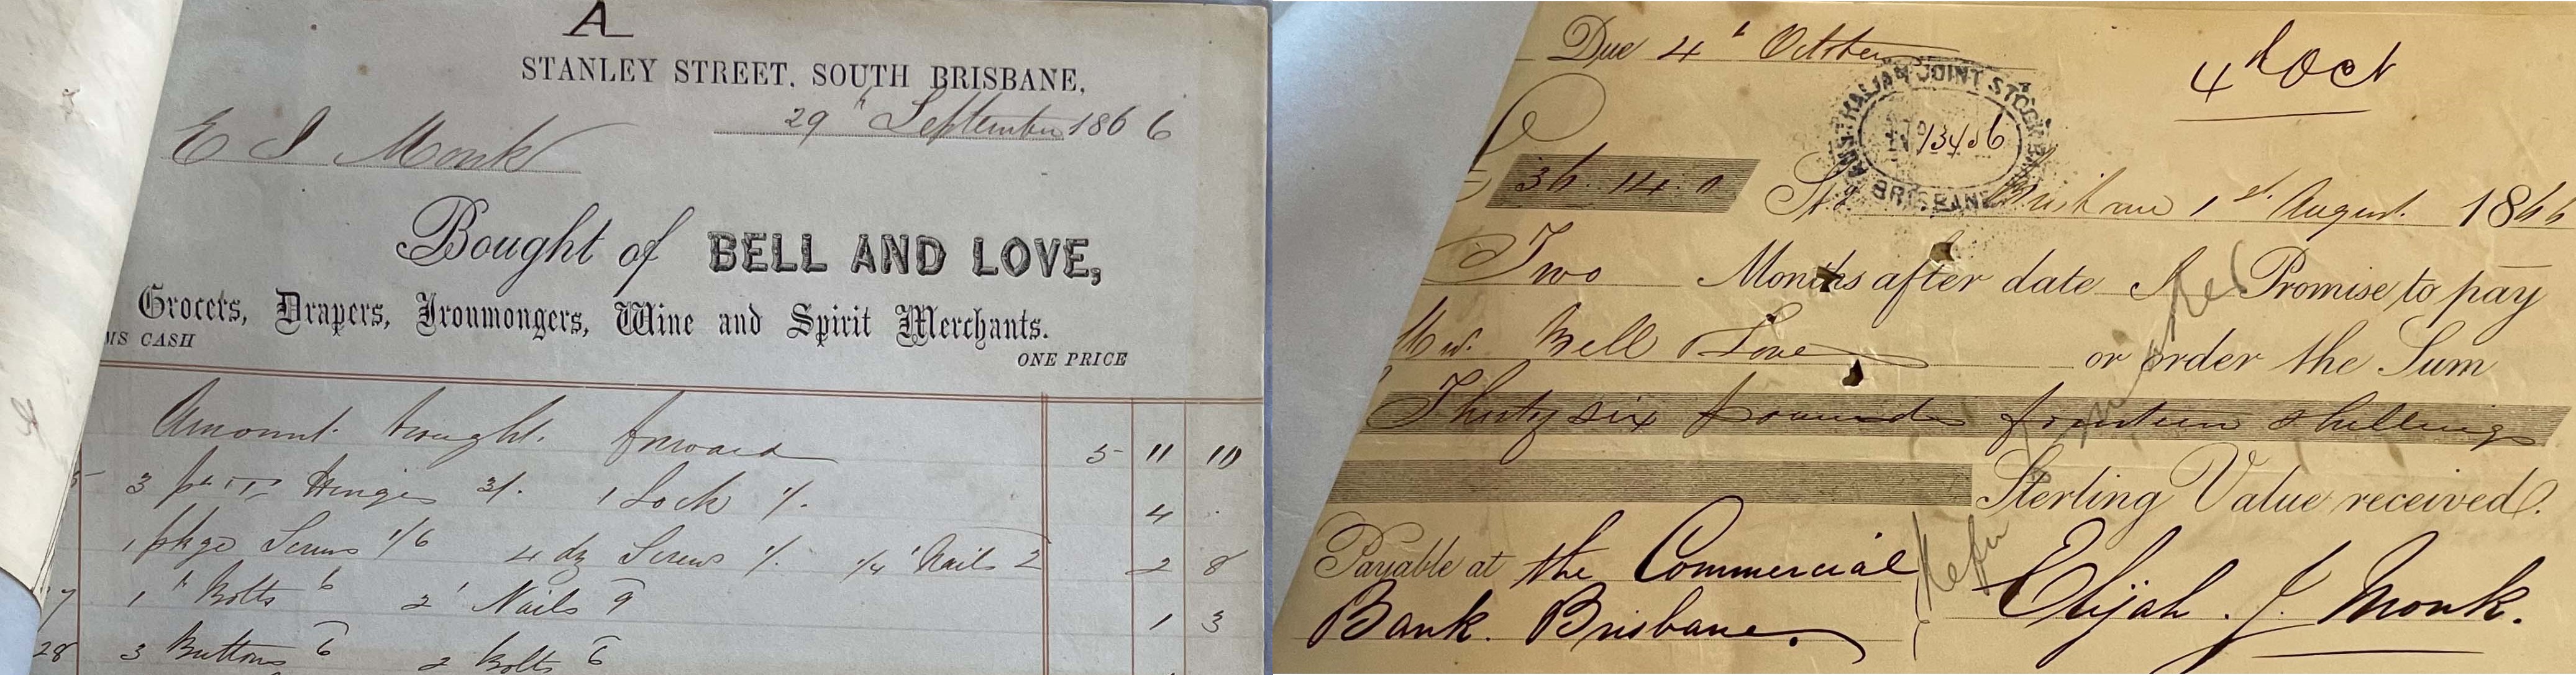 A
STANLEY STREET, SOUTH BRISBANE,
29th September 1866
E J Monk
Bought of BELL AND LOVE,
Grocers, Drapers, Ironmongers, Wine and Spirit Merchants.
MS CASH
ONE PRICE
Amount brought forward 5 11 10
3 pr Hinges 3/. 1 Lock 1/. 4 .
1 pkge Screws 1/6 4 dz Screws 1/. Nails 2 2 8
7 1 " Bolts 6 2 " Nails 9 1 3
28 3 Buttons 6 2 Bolts 6
Due 4th October
4th Oct
AUSTRALIAN JOINT STOCK BANK
No 13406
BRISBANE
£ 36.14.0 Brisbane 1st August 1866
Two Months after date I Promise to pay
Bell & Love or order the Sum
Thirty six pounds fourteen shillings
Sterling Value received.
Payable at the Commercial
Bank. Brisbane.
Elijah. J. Monk.